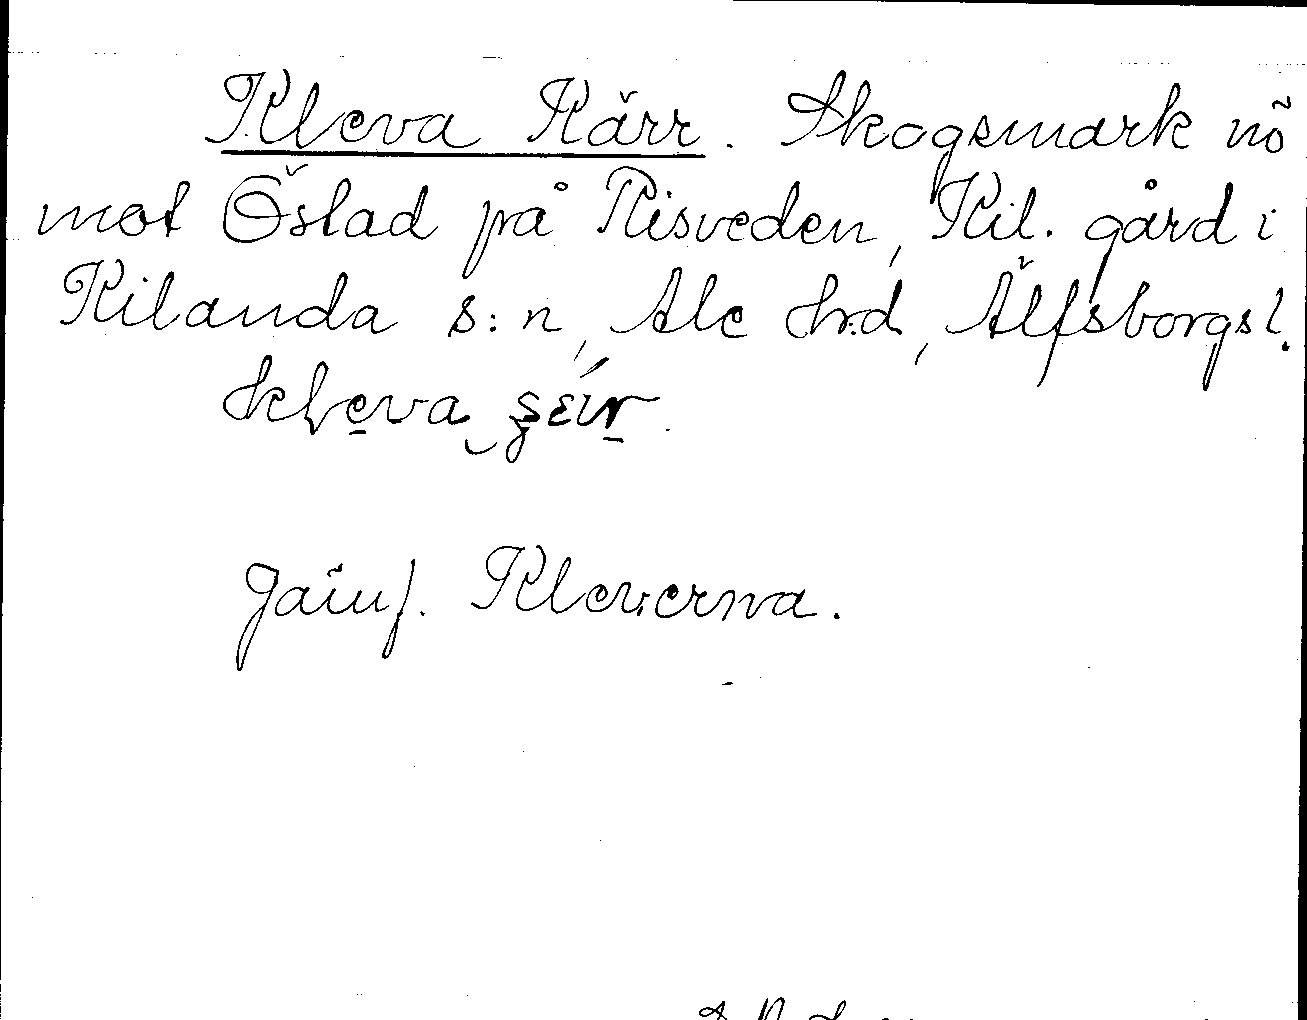 Kleva Kärr. Skogsmark nö
mot Östad på Risveden, Kil. gård i
Kilanda s:n, Ale hrd, Älfsborgs l.
kleva
Jämf. Kleverna.